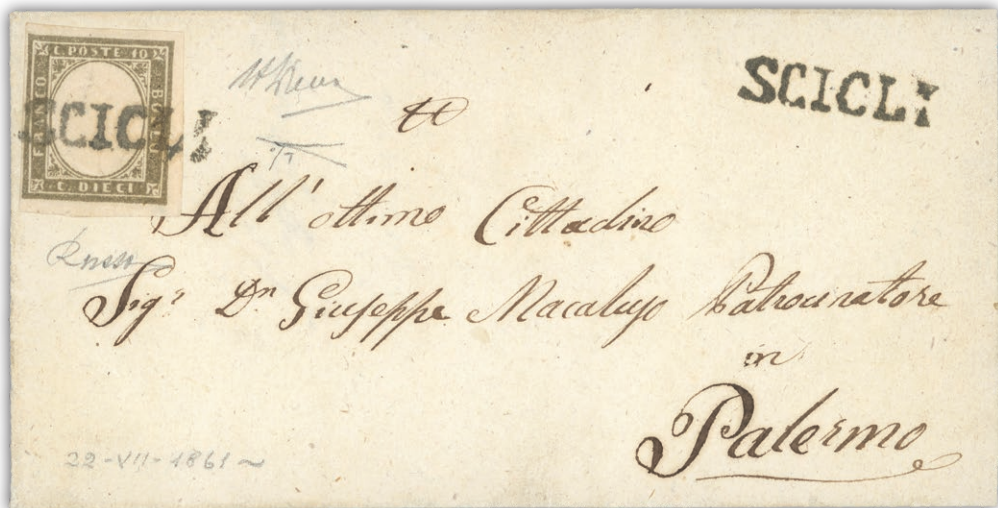 C. POSTE 10
FRANCO
BOLLO
C. DIECI
SCICLI
SCICLI
All' ottimo Cittadino
Sigr Dn Giuseppe Macaluso Patrocinatore
in
Palermo
Russo
22-VII-1861